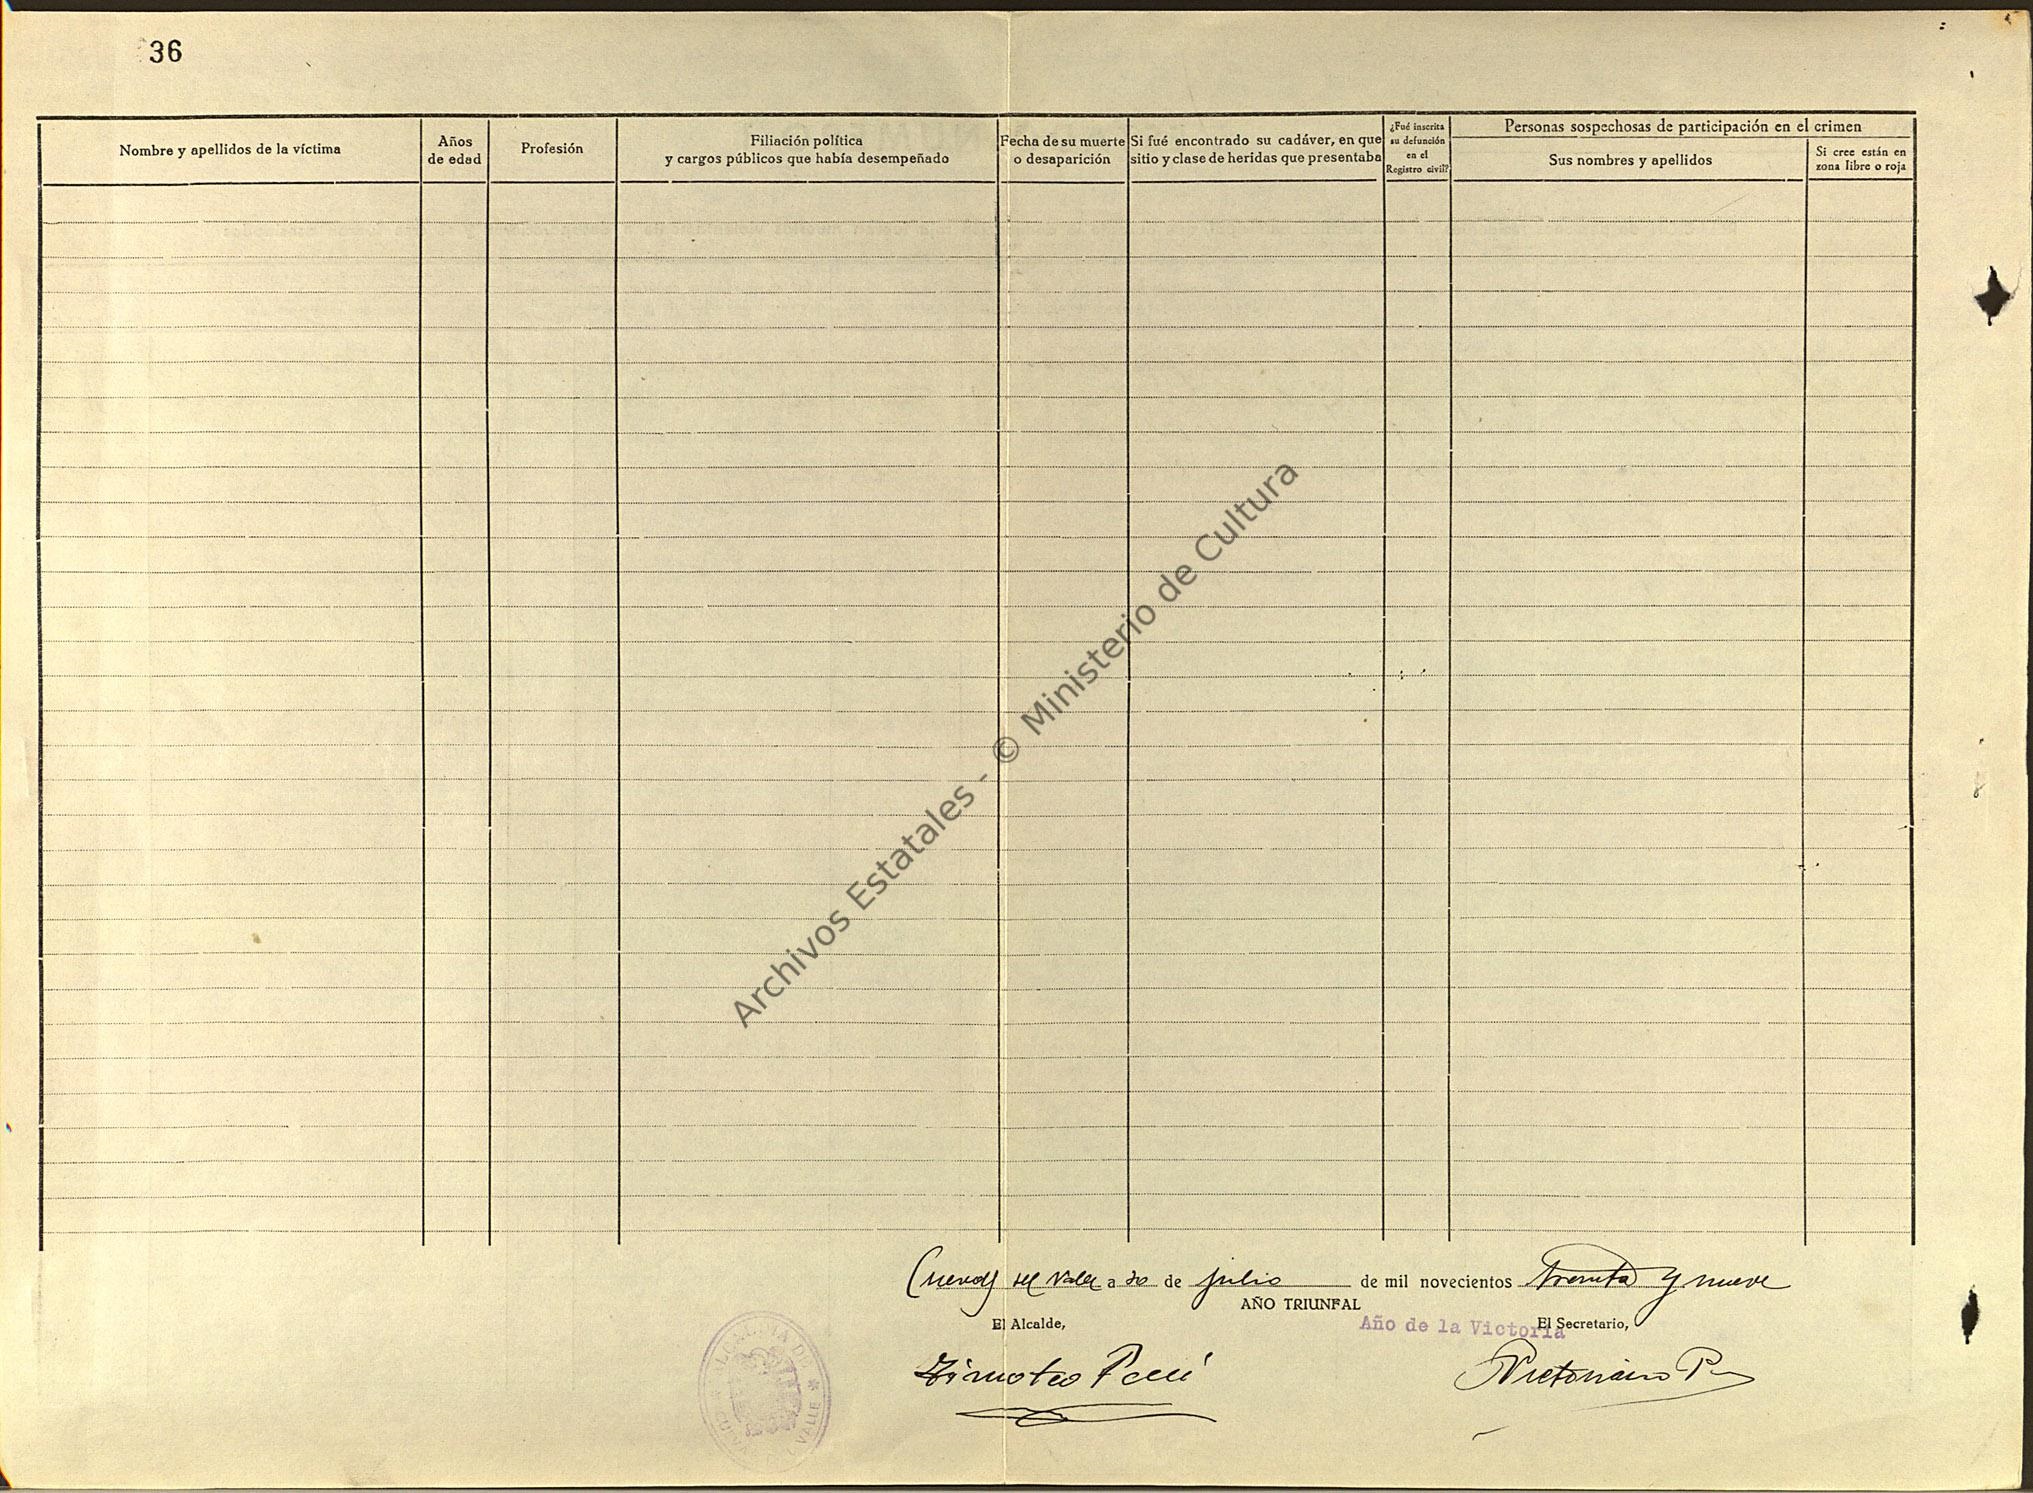 36
Nombre y apellidos de la víctima
Años
de edad
Profesión
Filiación política
y cargos públicos que había desempeñado
Fecha de su muerte
o desaparición
Si fué encontrado su cadáver, en que
sitio y clase de heridas que presentaba
¿Fué inscrita
su defunción
en el
Registro civil?
Personas sospechosas de participación en el crimen
Sus nombres y apellidos
Si cree están en
zona libre o roja
Archivos Estatales - © Ministerio de Cultura
Cuevas del Valle a 30 de julio de mil novecientos treinta y nueve
AÑO TRIUNFAL
Año de la Victoria
El Alcalde,
El Secretario,
Timoteo
Victoriano
ALCALDIA DE
VALLE